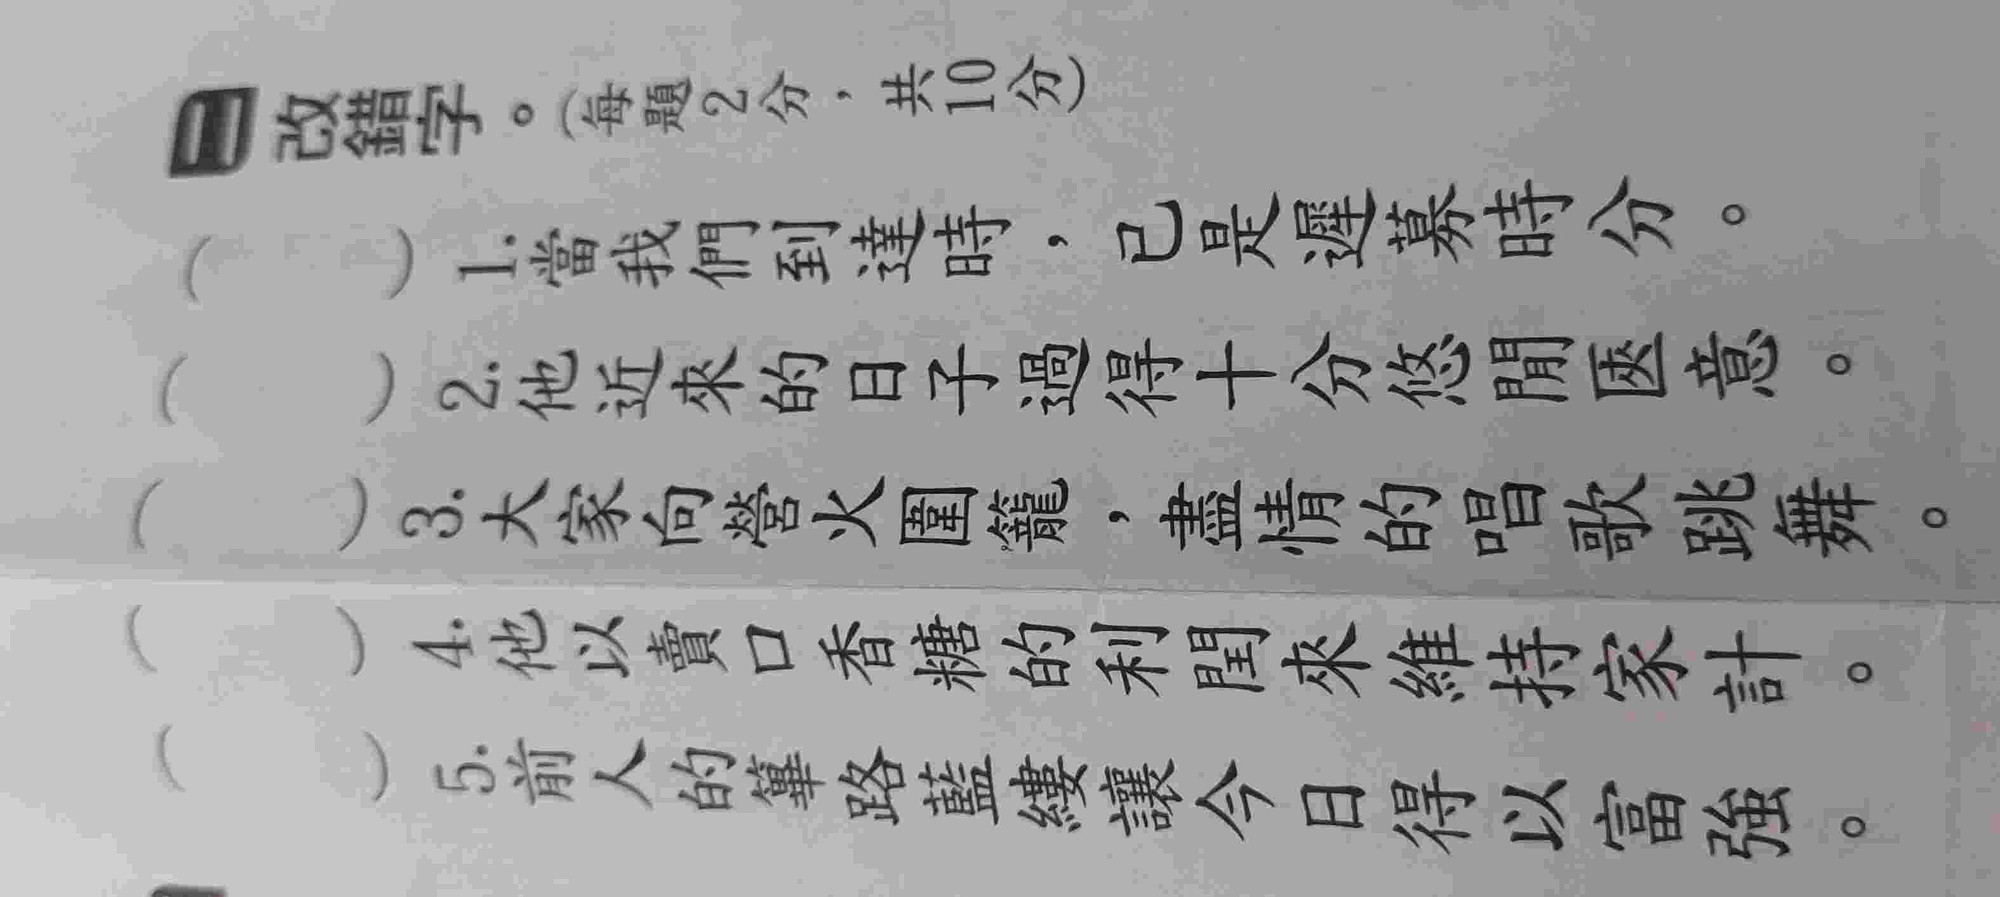 二 改錯字。(每題2分，共10分)
( ) 1.當我們到達時，已是遲募時分。
( ) 2.他近來的日子過得十分悠閒匧意。
( ) 3.大家向營火圍籠，盡情的唱歌跳舞。
( ) 4.他以賣口香糖的利閏來維持家計。
( ) 5.前人的篳路藍縷讓今日得以富強。